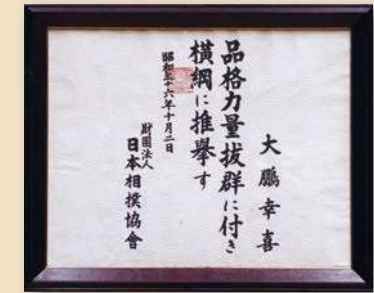 大鵬幸喜
品格力量抜群に付き
横綱に推擧す
昭和三十六年十月二日
財團法人
日本相撲協會